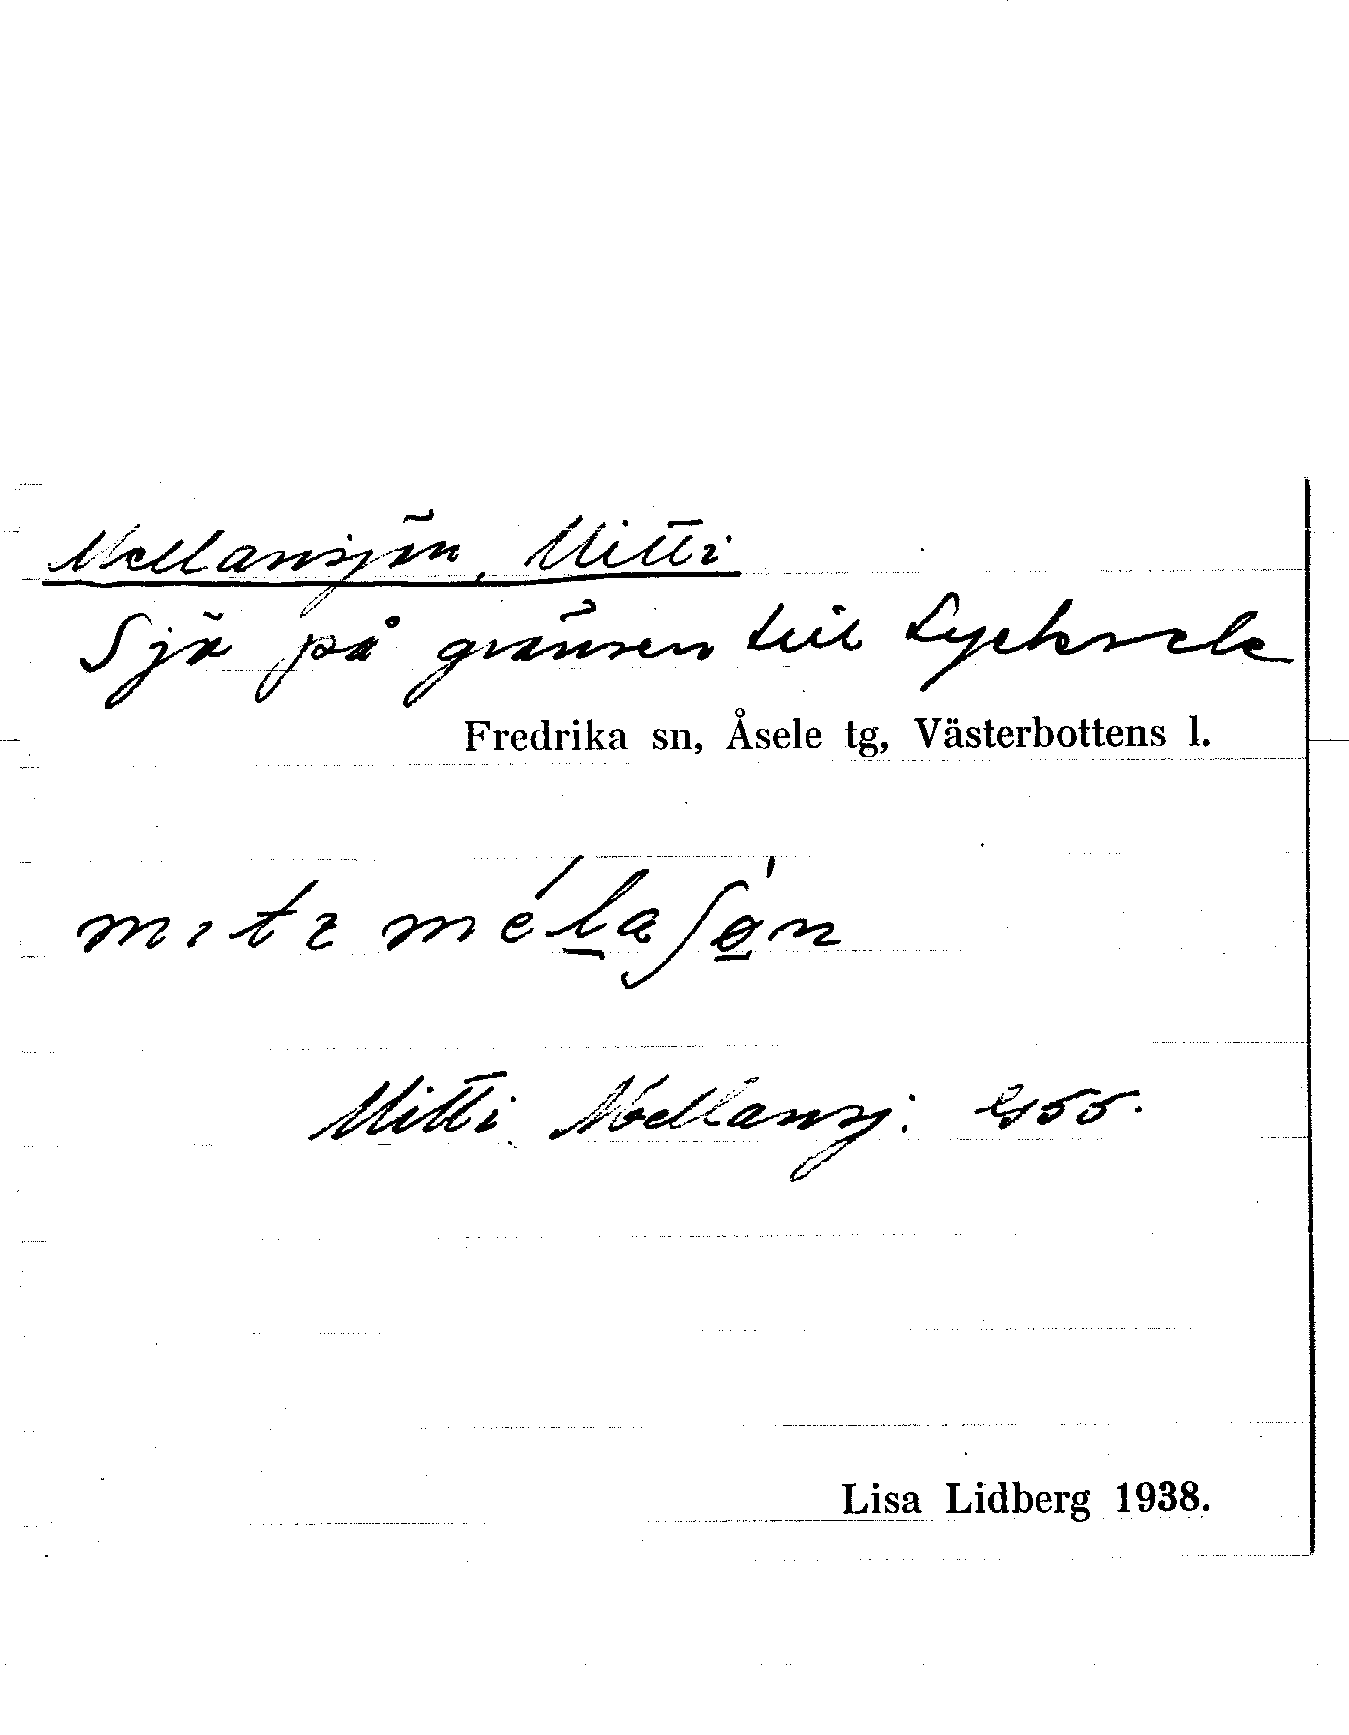 Mellansjön, Mitti
Sjö på gränsen till Lycksele
Fredrika sn, Åsele tg, Västerbottens l.
Mitti Mellansj:
Lisa Lidberg 1938.